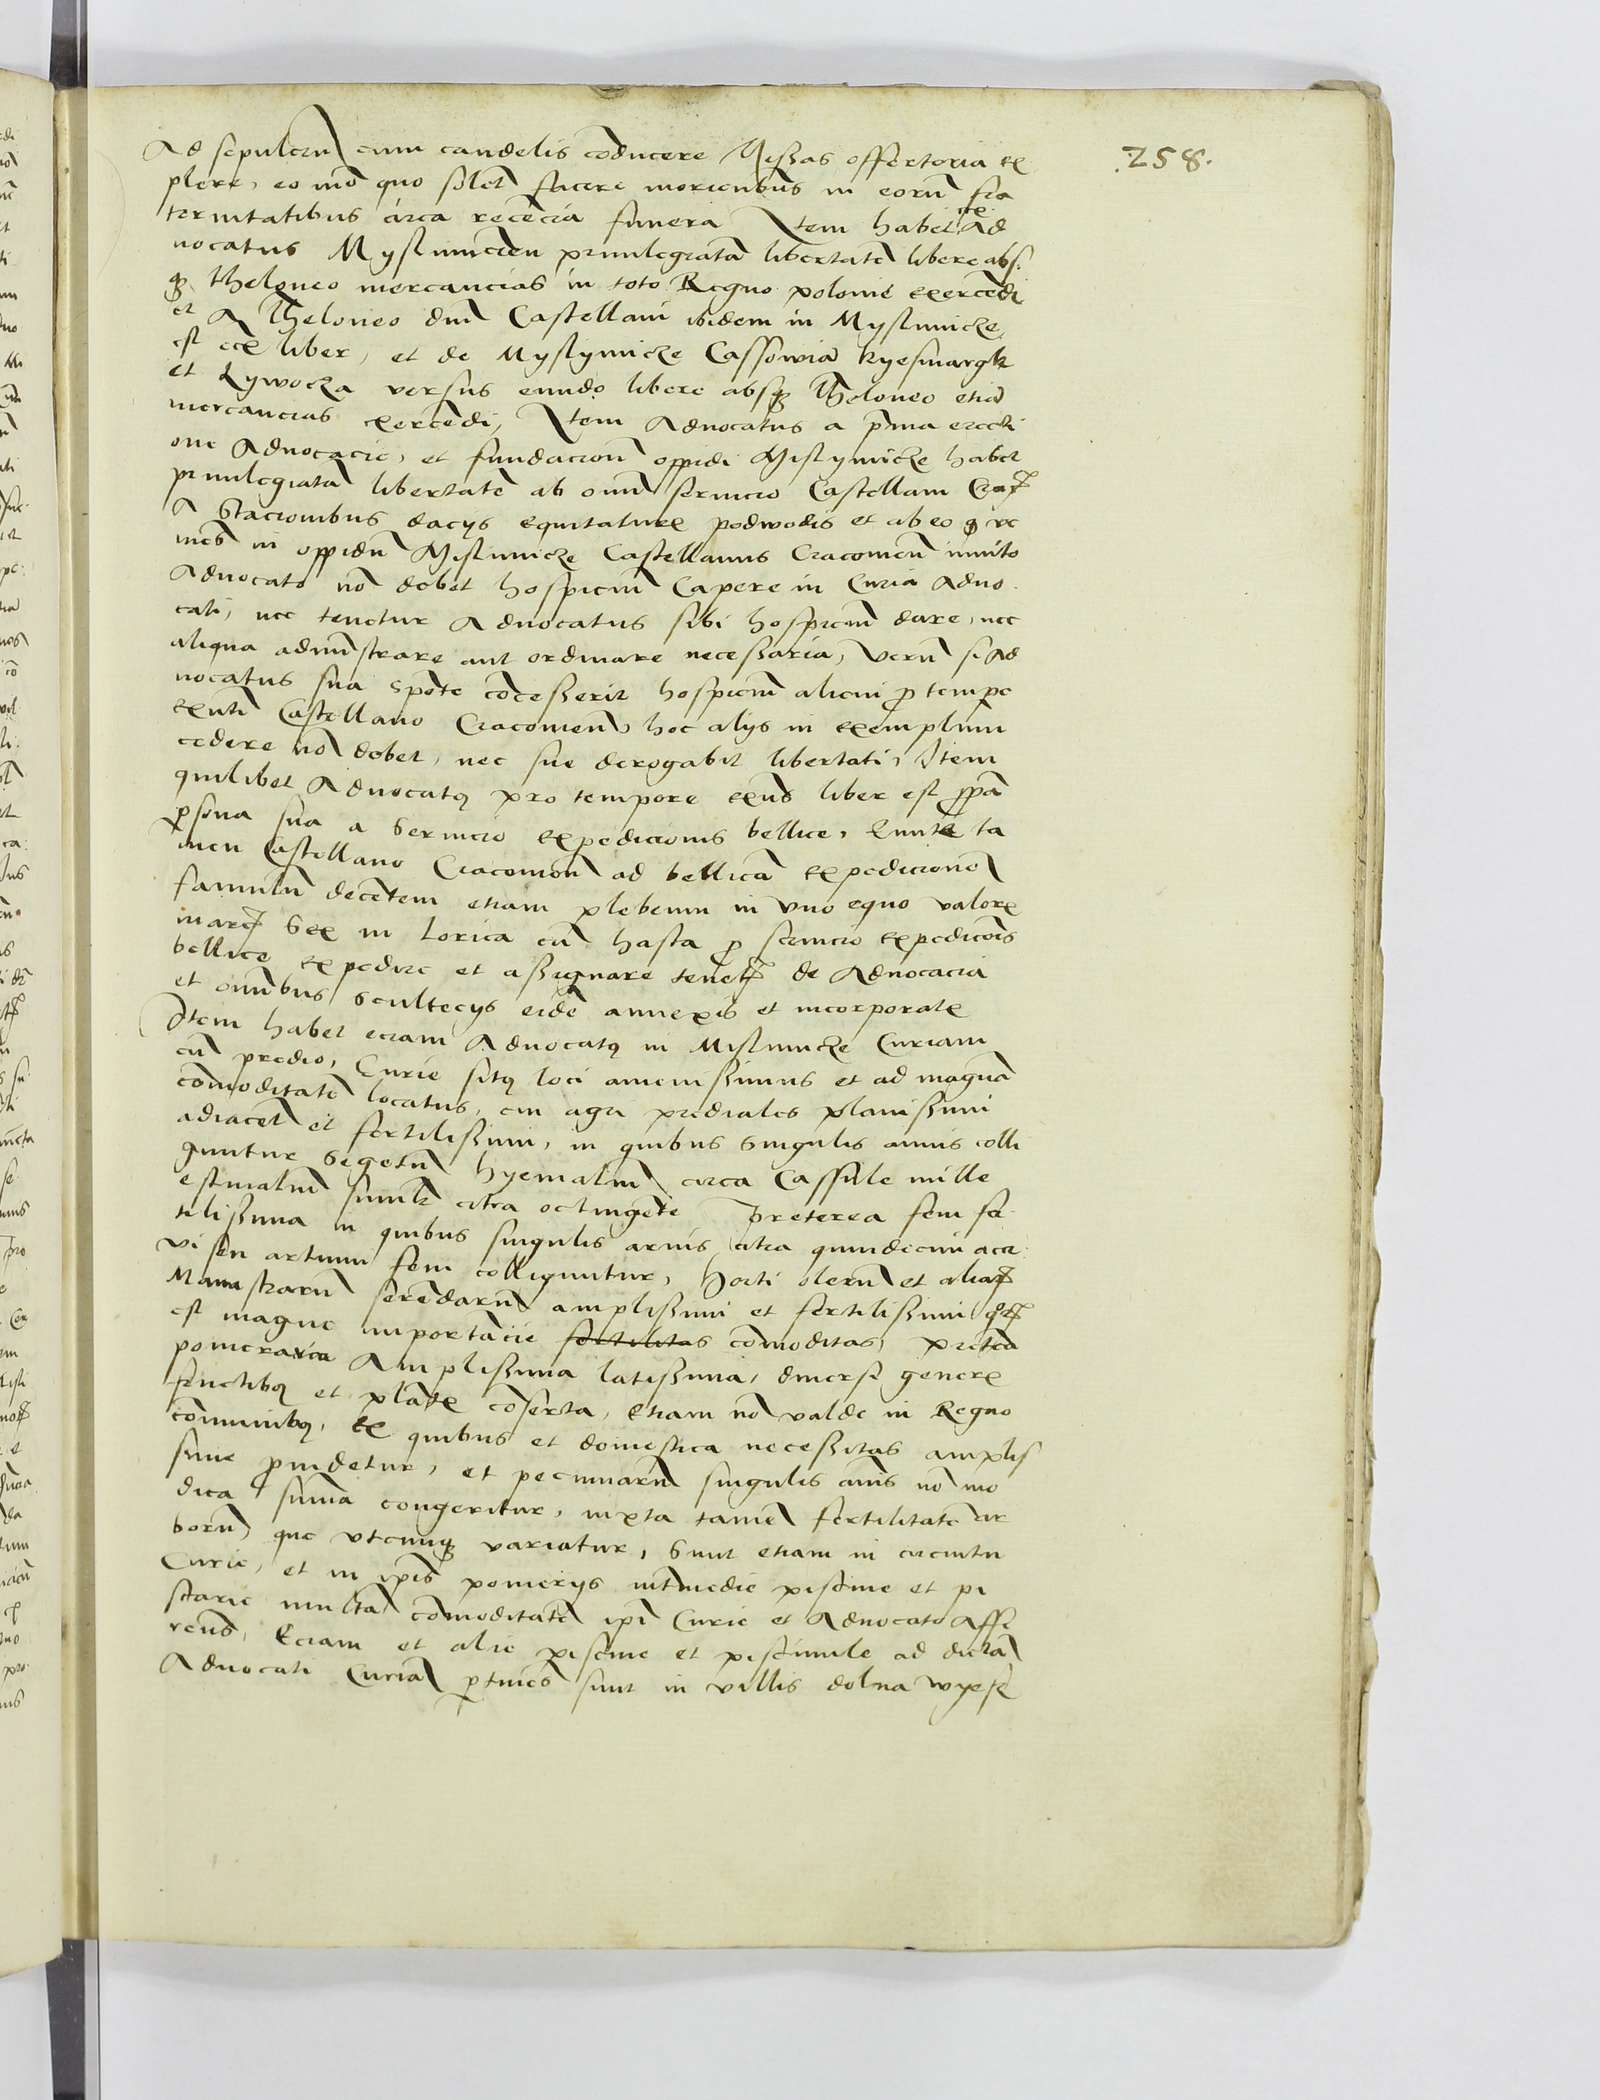 .258.
Ad sepulcrũ cum candelis cõducere Missas offertoria ex
plere, eo mõ quo solet facere morientibus in eorũ fra
ternitatibus circa recẽcia funera Item habet Ad
uocatus Myslimicien priuilegiatã libertatẽ libere abs
qꝫ theloneo mercancias in toto Regno polonie exercẽdi
et A Theloneo dnĩ Castellani ibidem in Myslimicze
est liber, et de Myslymicze Cassowiã Kyesmargk
et Lywocza versus eundo libere absqꝫ Theloneo etiã
mercancias exercẽdi, Item Aduocatus a pma erecti
one Aduocacie, et fundacionẽ oppidi Mislymicze habet
priuilegiatã libertatẽ ab omĩ seruicio Castellani
A Stacionibus dacys equitature podwodis et ab eo ve
niẽs in oppidũ Mislimicze Castellanus Cracouieñ inuito
Aduocato nõ debet hospiciũ Capere in Curia Aduo
cati, nec tenetur Aduocatus sibi hospiciũ dare, nec
aliqua admĩstrare aut ordinare necessaria, Verũ si Ad
uocatus sua spõte cõcesserit hospiciũ alicui ꝓ tempe
exñti Castellano Cracouieñ hoc alijs in exemplum
cedere nõ debet, nec sue derogabit libertati, Item
quilibet Aduocatꝰ pro tempore exñs liber est
ꝑsona sua a Seruicio expedicionis bellice, ta
men Castellano Cracouieñ ad bellicã expedicionẽ
famulũ decẽtem etiam plebeium in vno equo valore
marc Sex in Lorica cũ hasta ꝓ seruicio expedicõis
bellice expedire et assignare tenet de Aduocacia
et omĩbus Scultecys eidẽ annexis et incorporate
Item habet eciam Aduocatꝰ in Mislimicze Curiam
cũ predio, Curie sitꝰ loci amenissimus et ad magnã
cõmoditatẽ locatus, cui agri prediales planissimi
adiacẽt et fertilissimi, in quibus Singulis annis colli
guntur Segetũ hyemaliũ circa Cassule mille
estiualiũ simlr citra octingẽte Preterea feni
tilissima in quibus singulis annis citra quindecim acer
vi seu artuum feni colliguntur, Horti olerũ et aliar
serẽdarũ amplissimi et fertilissimi
est magne importãcie fertilitas cõmoditas, preterea
pomeraria Amplissima latissima, diuersi genere
fructibꝰ et plãte cõserta, etiam nõ valde in Regno
cõmunibꝰ, Ex quibus et domestica necessitas amplis
sime ꝓuidetur, et pecuniarũ singulis annis nõ mo
dica summa congeritur, iuxta tamẽ fertilitatẽ ar
borũ que vtcunqꝫ variatur, Sunt etiam in circuitu
Curie, et in ipĩs pomerijs intmedie piscine et pi
scarie multã cõmoditatẽ ipĩ Curie et Aduocato affe
rẽs, Eciam et alie piscine et piscinule ad dictã
Aduocati Curiã ꝑtinẽs sunt in villis dolna